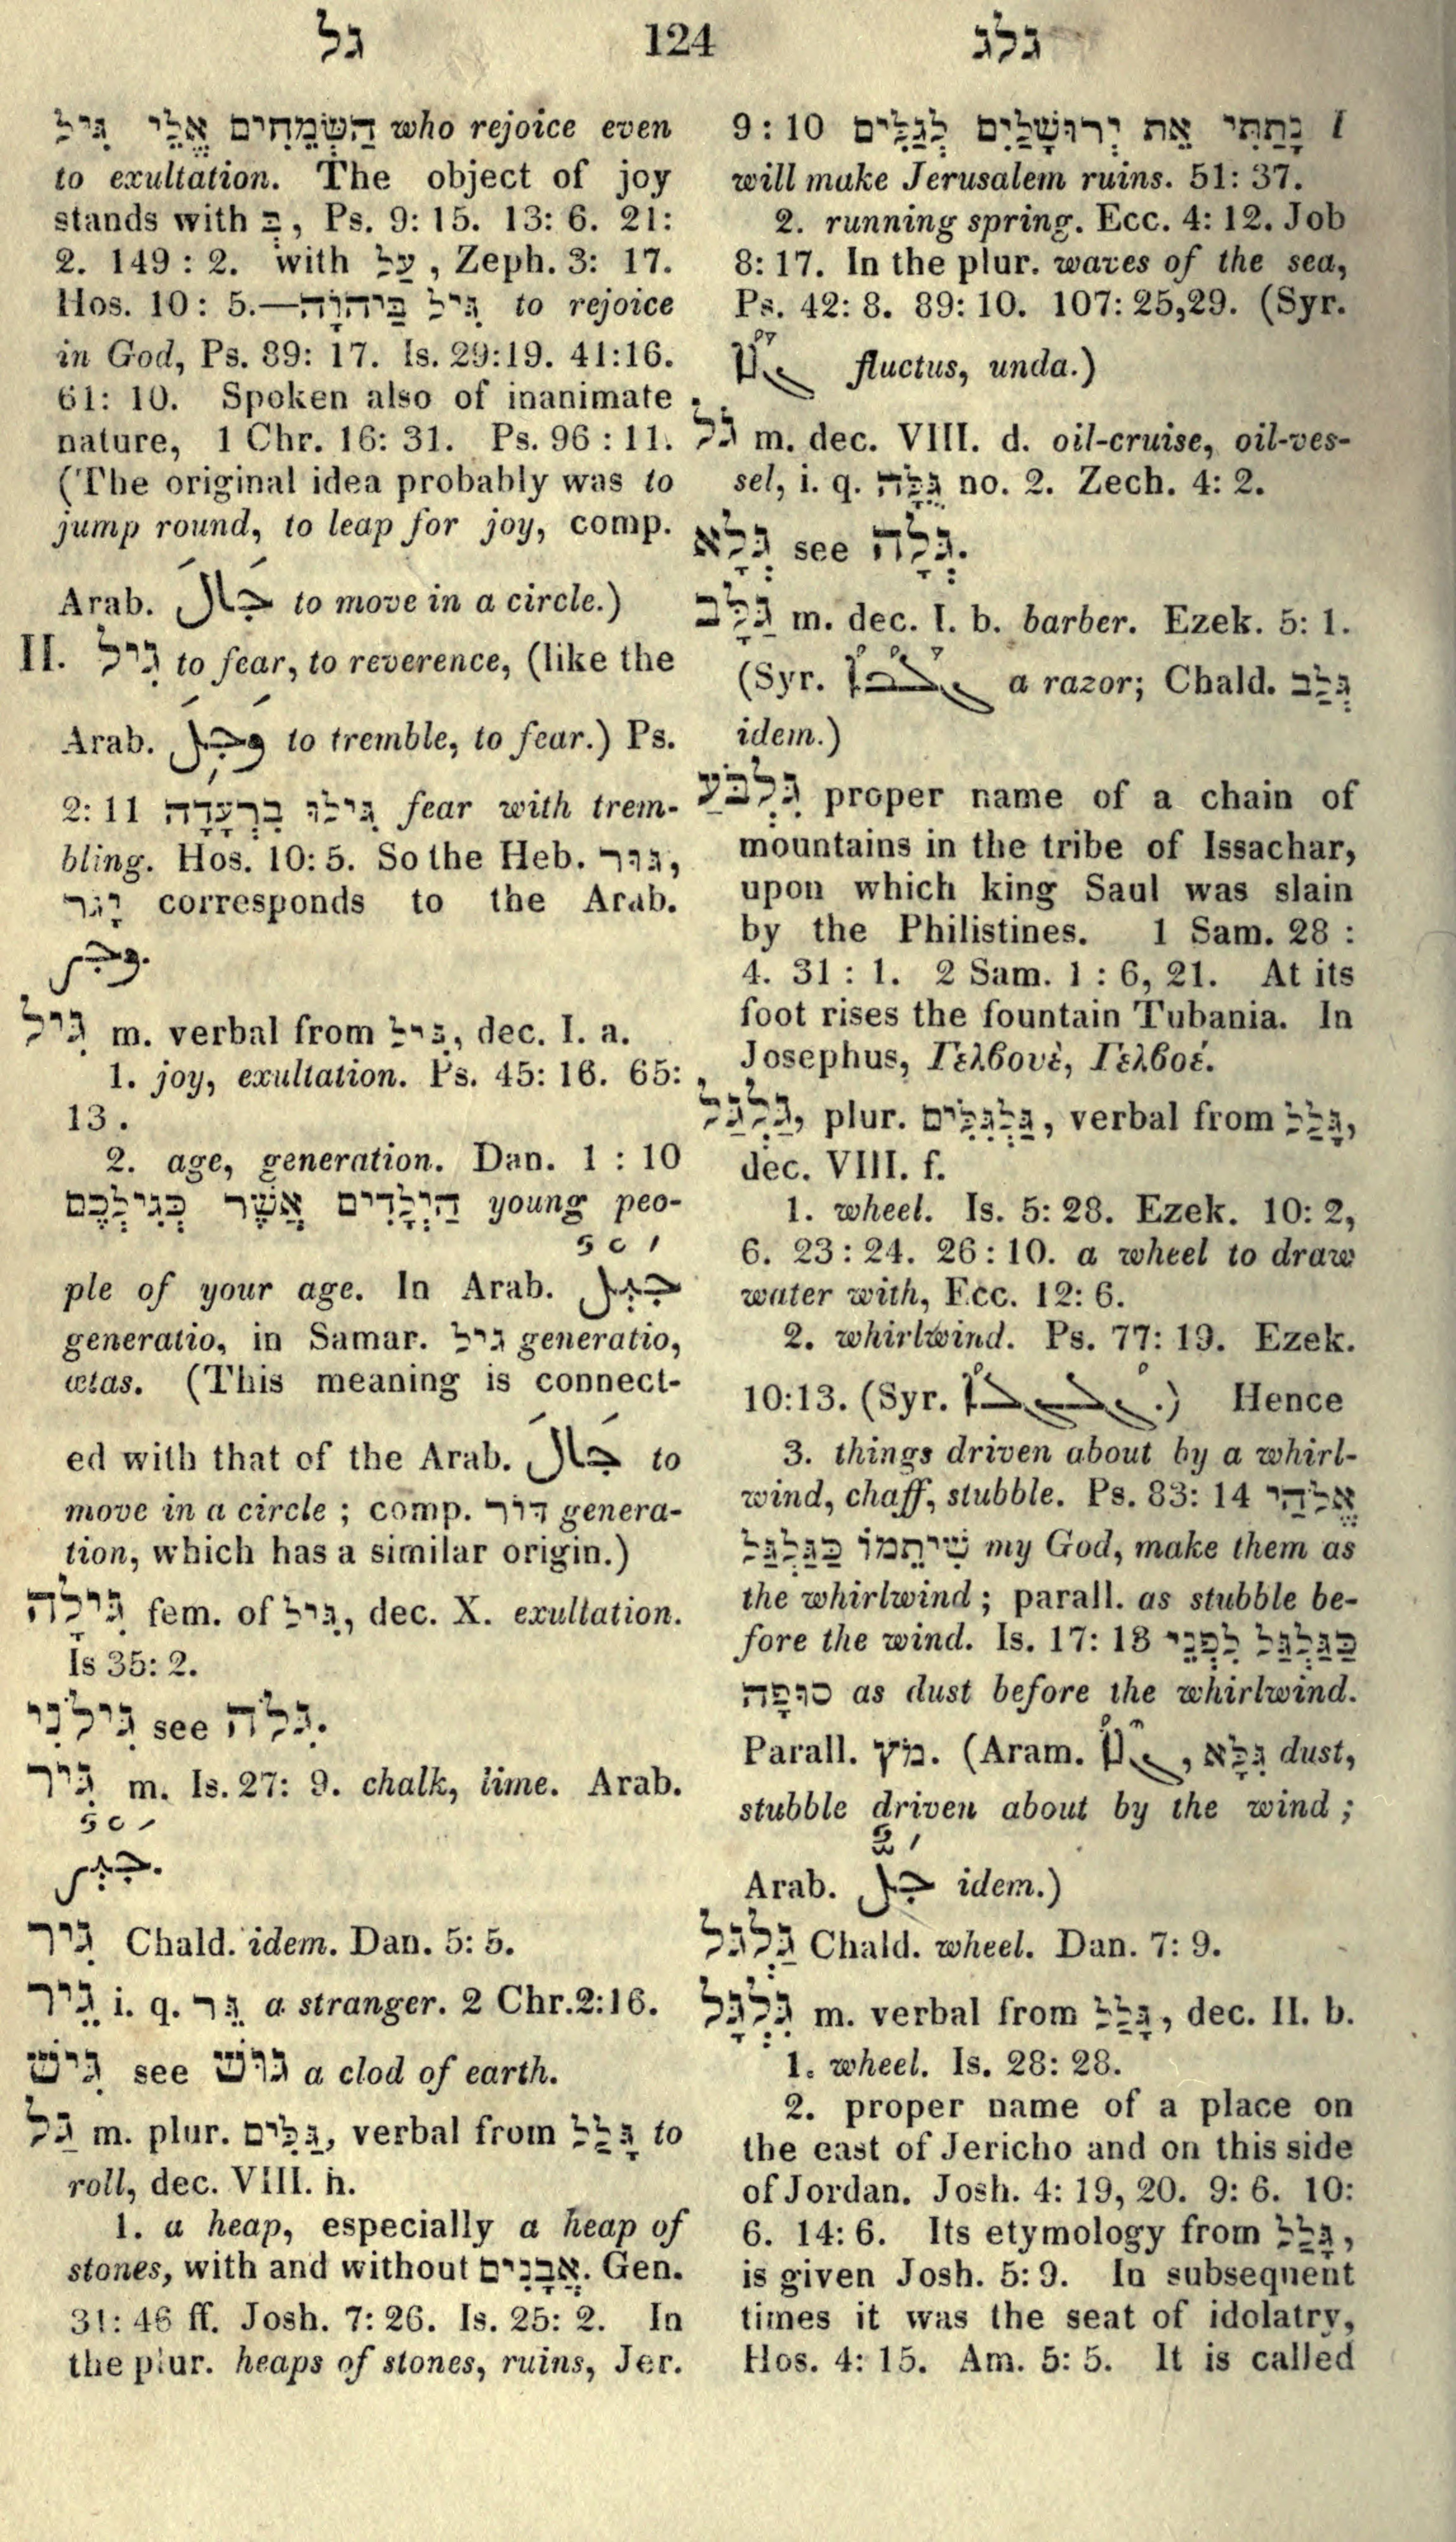 גל 124 גלג
הַשְּׂמֵחִים אֱלֵי גִיל who rejoice even
to exultation. The object of joy
stands with בְּ, Ps. 9: 15. 13: 6. 21:
2. 149 : 2. with עַל, Zeph. 3: 17.
Hos. 10: 5.—גִּיל בַּיהוָֹה to rejoice
in God, Ps. 89: 17. Is. 29:19. 41:16.
61: 10. Spoken also of inanimate
nature, 1 Chr. 16: 31. Ps. 96 : 11.
(The original idea probably was to
jump round, to leap for joy, comp.
Arab. جَالَ to move in a circle.)
II. גִּיל to fear, to reverence, (like the
Arab. وَجِلَ to tremble, to fear.) Ps.
2: 11 גִּילוּ בִּרְעָדָה fear with trem-
bling. Hos. 10: 5. So the Heb. גּוּר,
יָגר corresponds to the Arab.
وجر.
גִּיל m. verbal from גִּיל, dec. I. a.
1. joy, exultation. Ps. 45: 16. 65:
13.
2. age, generation. Dan. 1 : 10
הַיְלָדִים אֲשֶׁר כְּגִילְכֶם young peo-
ple of your age. In Arab. جَيْلٌ
generatio, in Samar. גיל generatio,
ætas. (This meaning is connect-
ed with that of the Arab. جَالَ to
move in a circle ; comp. דּוֹר genera-
tion, which has a similar origin.)
גִּילָה fem. of גִּיל, dec. X. exultation.
Is 35: 2.
גִּילֹנִי see גִּלֹה.
גִּיר m. Is. 27: 9. chalk, lime. Arab.
جَيْرٌ.
גִּיר Chald. idem. Dan. 5: 5.
גֵּיר i. q. גֵּר a stranger. 2 Chr.2:16.
גִּישׁ see גּוּשׁ a clod of earth.
גַּל m. plur. גַּלִּים, verbal from גָּלַל to
roll, dec. VIII. h.
1. a heap, especially a heap of
stones, with and without אֲבָנִים. Gen.
31: 46 ff. Josh. 7: 26. Is. 25: 2. In
the plur. heaps of stones, ruins, Jer.
9 : 10 נָתַתִּי אֶת יְרוּשָׁלַיִם לְגַלִּים I
will make Jerusalem ruins. 51: 37.
2. running spring. Ecc. 4: 12. Job
8: 17. In the plur. waves of the sea,
Ps. 42: 8. 89: 10. 107: 25,29. (Syr.
fluctus, unda.)
גֹּל m. dec. VIII. d. oil-cruise, oil-ves-
sel, i. q. גֻּלָּה no. 2. Zech. 4: 2.
גְּלָא see גְּלָה.
גַּלָּב m. dec. I. b. barber. Ezek. 5: 1.
(Syr. a razor; Chald. גְּלַב
idem.)
גִּלְבֹּעַ proper name of a chain of
mountains in the tribe of Issachar,
upon which king Saul was slain
by the Philistines. 1 Sam. 28 :
4. 31 : 1. 2 Sam. 1 : 6, 21. At its
foot rises the fountain Tubania. In
Josephus, Γελβουὲ, Γελβοέ.
גַּלְגַּל, plur. גַּלְגִּלִּים, verbal from גָּלַל,
dec. VIII. f.
1. wheel. Is. 5: 28. Ezek. 10: 2,
6. 23 : 24. 26 : 10. a wheel to draw
water with, Ecc. 12: 6.
2. whirlwind. Ps. 77: 19. Ezek.
10:13. (Syr. .) Hence
3. things driven about by a whirl-
wind, chaff, stubble. Ps. 83: 14 אֱלֹהַי
שִׁיתֵמוֹ כַּגַּלְגַּל my God, make them as
the whirlwind ; parall. as stubble be-
fore the wind. Is. 17: 13 כַּגַּלְגַּל לִפְנֵי
סוּפָה as dust before the whirlwind.
Parall. מֹץ. (Aram. , גִּלָּא dust,
stubble driven about by the wind ;
Arab. جَلٌّ idem.)
גַּלְגַּל Chald. wheel. Dan. 7: 9.
גִּלְגָּל m. verbal from גָּלַל, dec. II. b.
1. wheel. Is. 28: 28.
2. proper name of a place on
the east of Jericho and on this side
of Jordan. Josh. 4: 19, 20. 9: 6. 10:
6. 14: 6. Its etymology from גָּלַל,
is given Josh. 5: 9. In subsequent
times it was the seat of idolatry,
Hos. 4: 15. Am. 5: 5. It is called